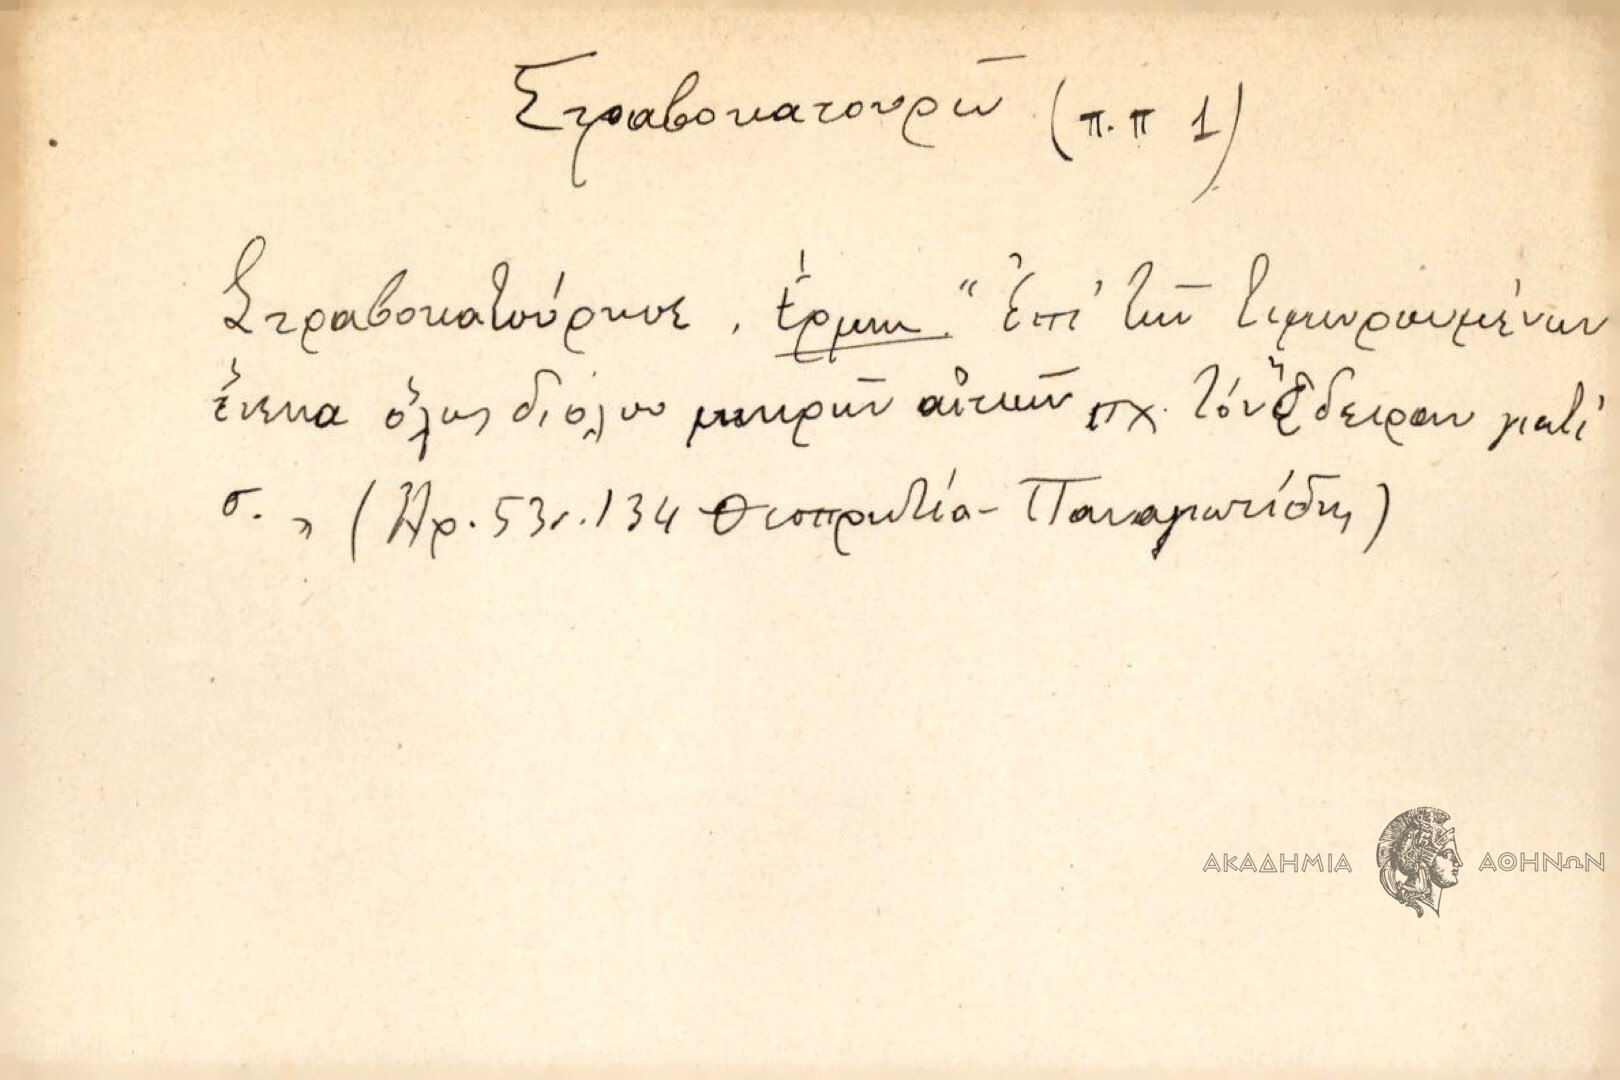 Στραβοκατουρῶ (π.π 1)
Στραβοκατούρησε . ἑρμην. "ἐπὶ τῶν τιμωρουμένων
ἕνεκα ὅλως διόλου μικρῶν αἰτιῶν π.χ. τόν ἔδειραν γιατί
σ. „ (Ἀρ. 53 σ. 134 Θεσπρωτία - Παναγιωτίδης)
ΑΚΑΔΗΜΙΑ ΑΘΗΝΩΝ